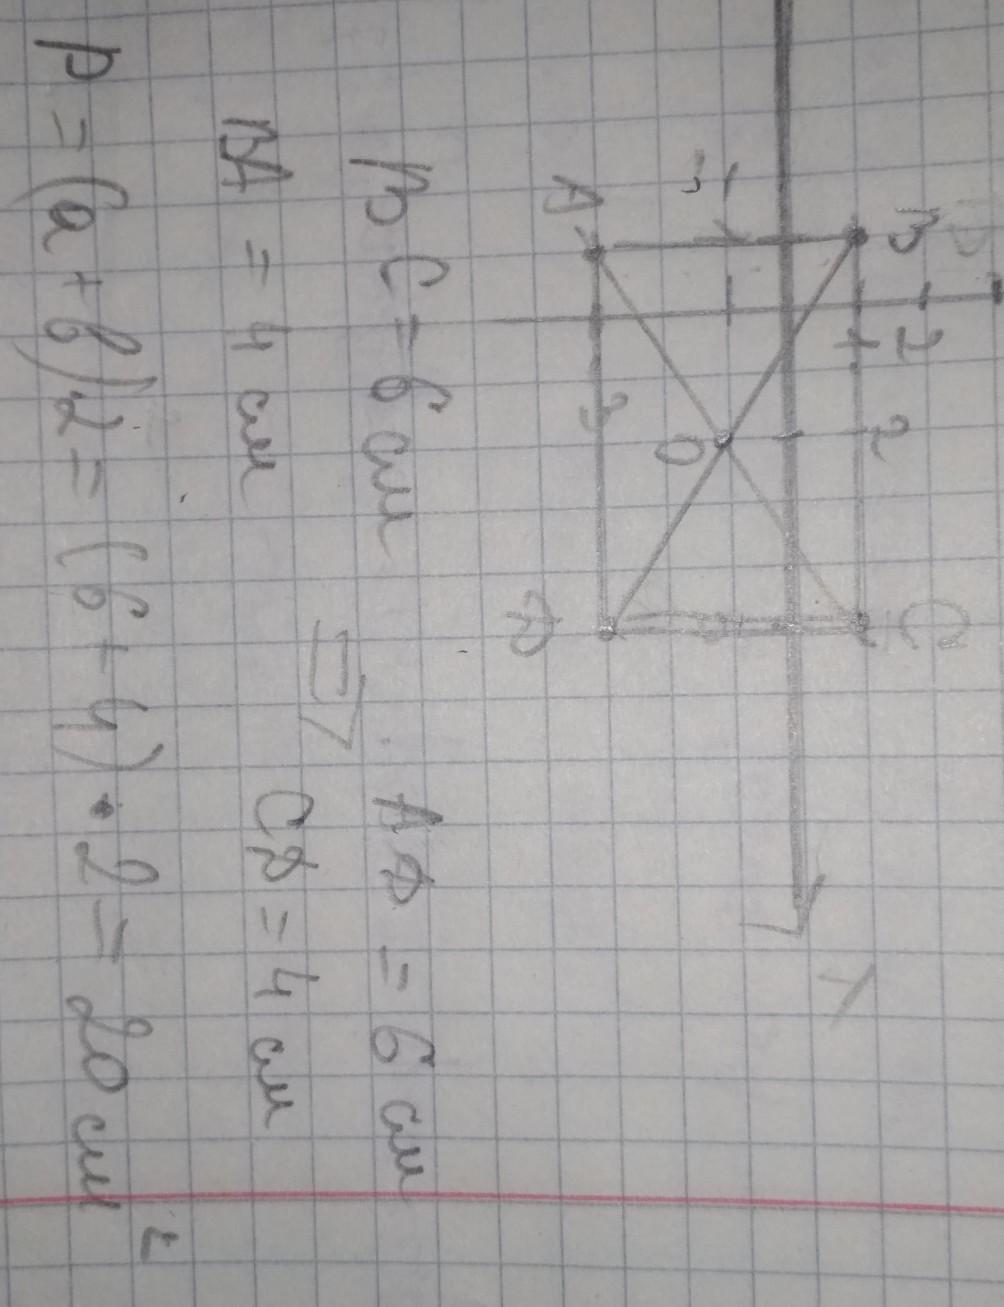 B 2
1 2 C
-1 O
A 3 D
BC = 6 см AD = 6 см
BA = 4 см CD = 4 см
P = (a + b) · 2 = (6 + 4) · 2 = 20 см